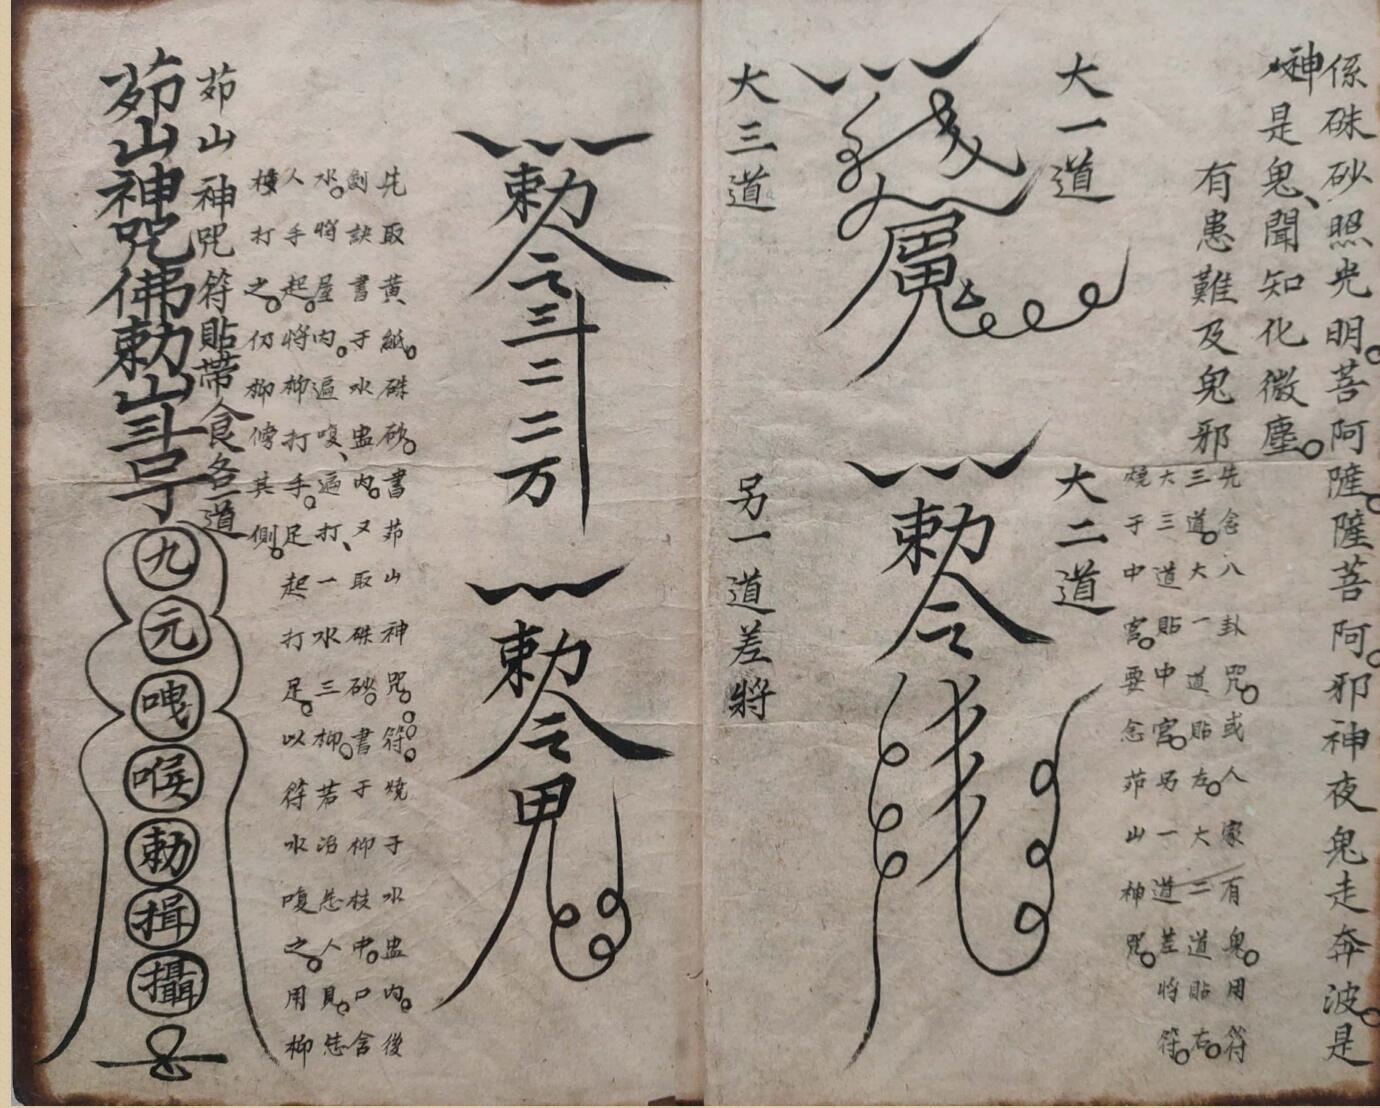 係硃砂照光明。菩阿薩。薩菩阿。邪神夜鬼走奔波。是
神是鬼、聞知化微塵。
有患難及鬼邪
先念八卦咒。或人家有鬼。用符
三道。大一道貼左。大二道貼右。
大三道貼中宮。另一道差將符。
燒于中宮。要念茆山神咒。
大一道
大二道
勅令
大三道
另一道差將
勅令三二二万
勅令
先取黃紙。硃砂。書茆山神咒。符。燒于水盅内。後
劍訣書于水盅内。又取硃砂。書于柳枝中。口含
水。將屋内。遍噴、遍打、一水三柳。若治患人身。患
人手起。將柳打手。足起打足。以符水噴之。用柳
打之。仍柳傍其側。
茆山神咒符貼帶食各一道
茆山神咒佛勅山
九
元
喉
勅
揖
攝